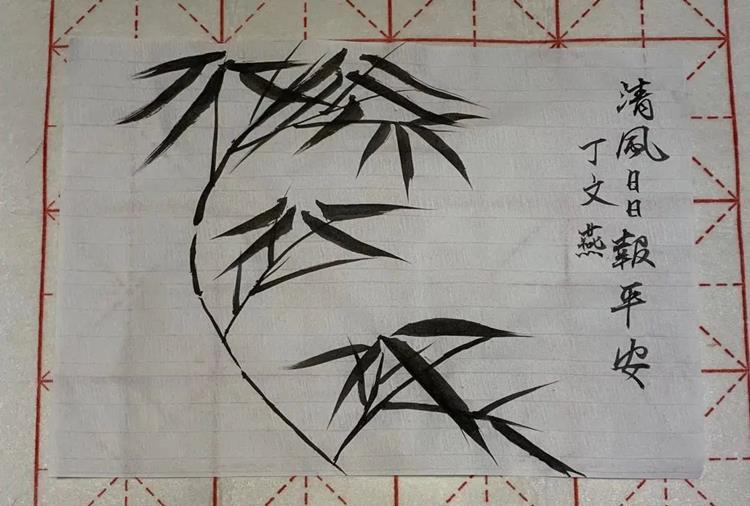 清風日日報平安
丁文燕